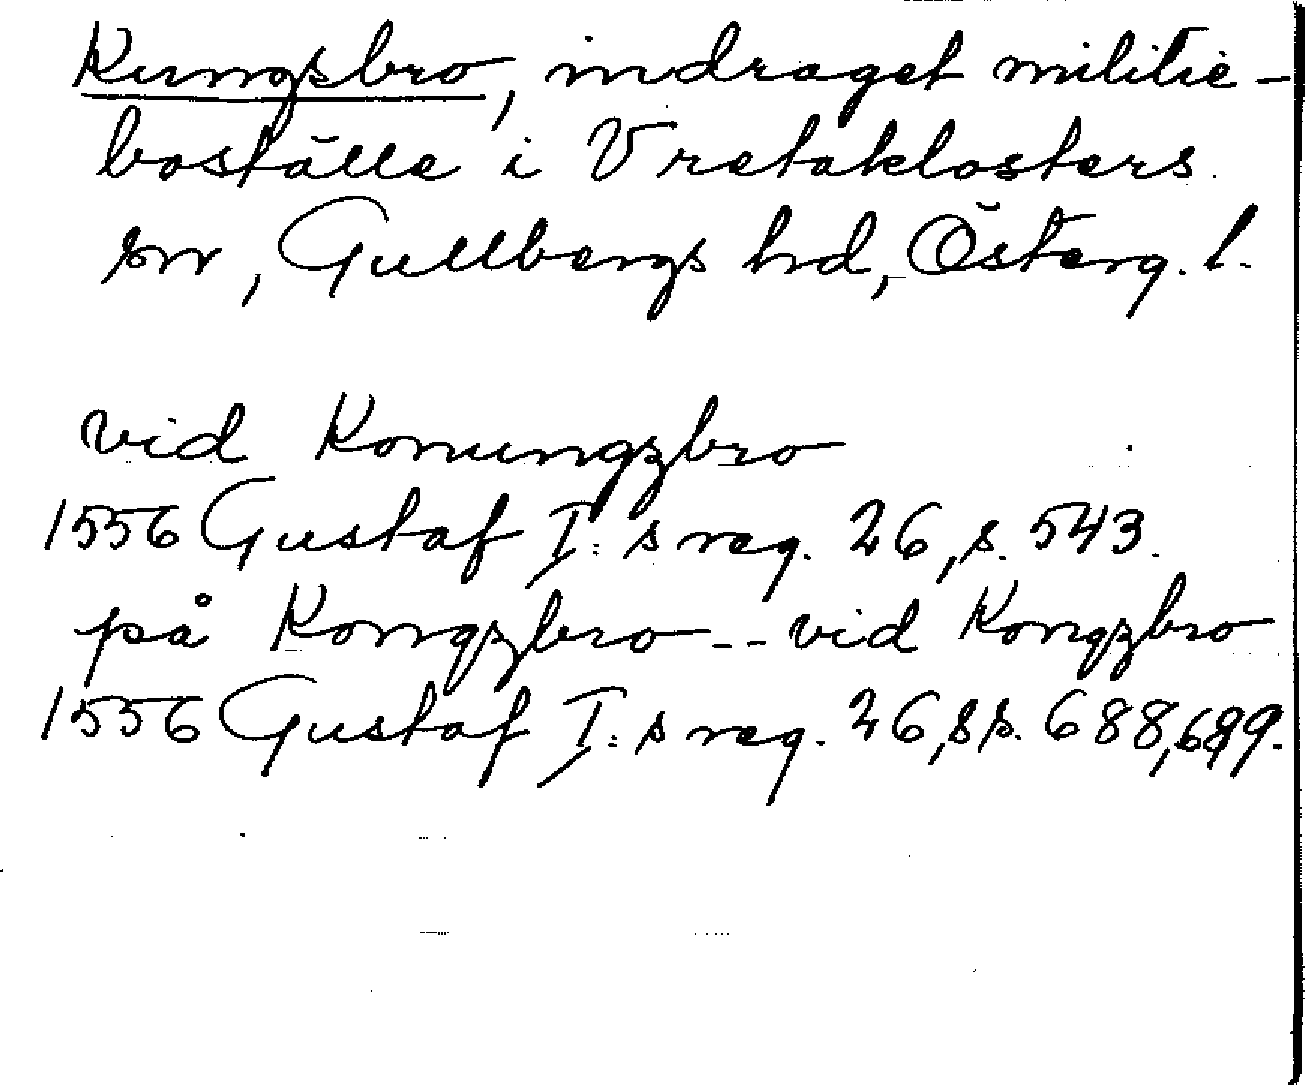 Kungsbro, indraget militie-
boställe i Vretaklosters
sn, Gullbergs hd, Österg. l.
vid Konungzbro
1556 Gustaf I:s reg. 26, s. 543.
på Kongzbro -- vid Kongzbro
1556 Gustaf I:s reg. 26, ss. 688, 689.